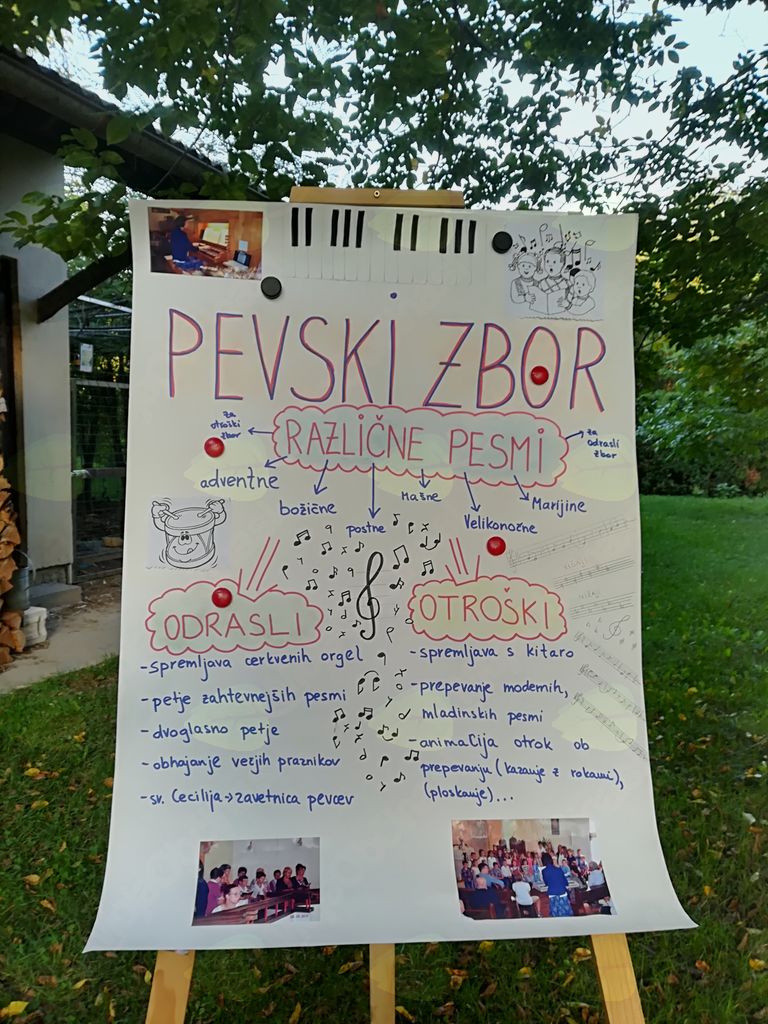 PEVSKI ZBOR
za
otroški
zbor
RAZLIČNE PESMI
za
odrasli
zbor
adventne
božične
postne
Mašne
Velikonočne
Marijine
ODRASLI
-spremljava cerkvenih orgel
-petje zahtevnejših pesmi
-dvoglasno petje
-obhajanje večjih praznikov
-sv. Cecilija→zavetnica pevcev
OTROŠKI
-spremljava s kitaro
-prepevanje modernih,
mladinskih pesmi
-animacija otrok ob
prepevanju (kazanje z rokami),
(ploskanje)...